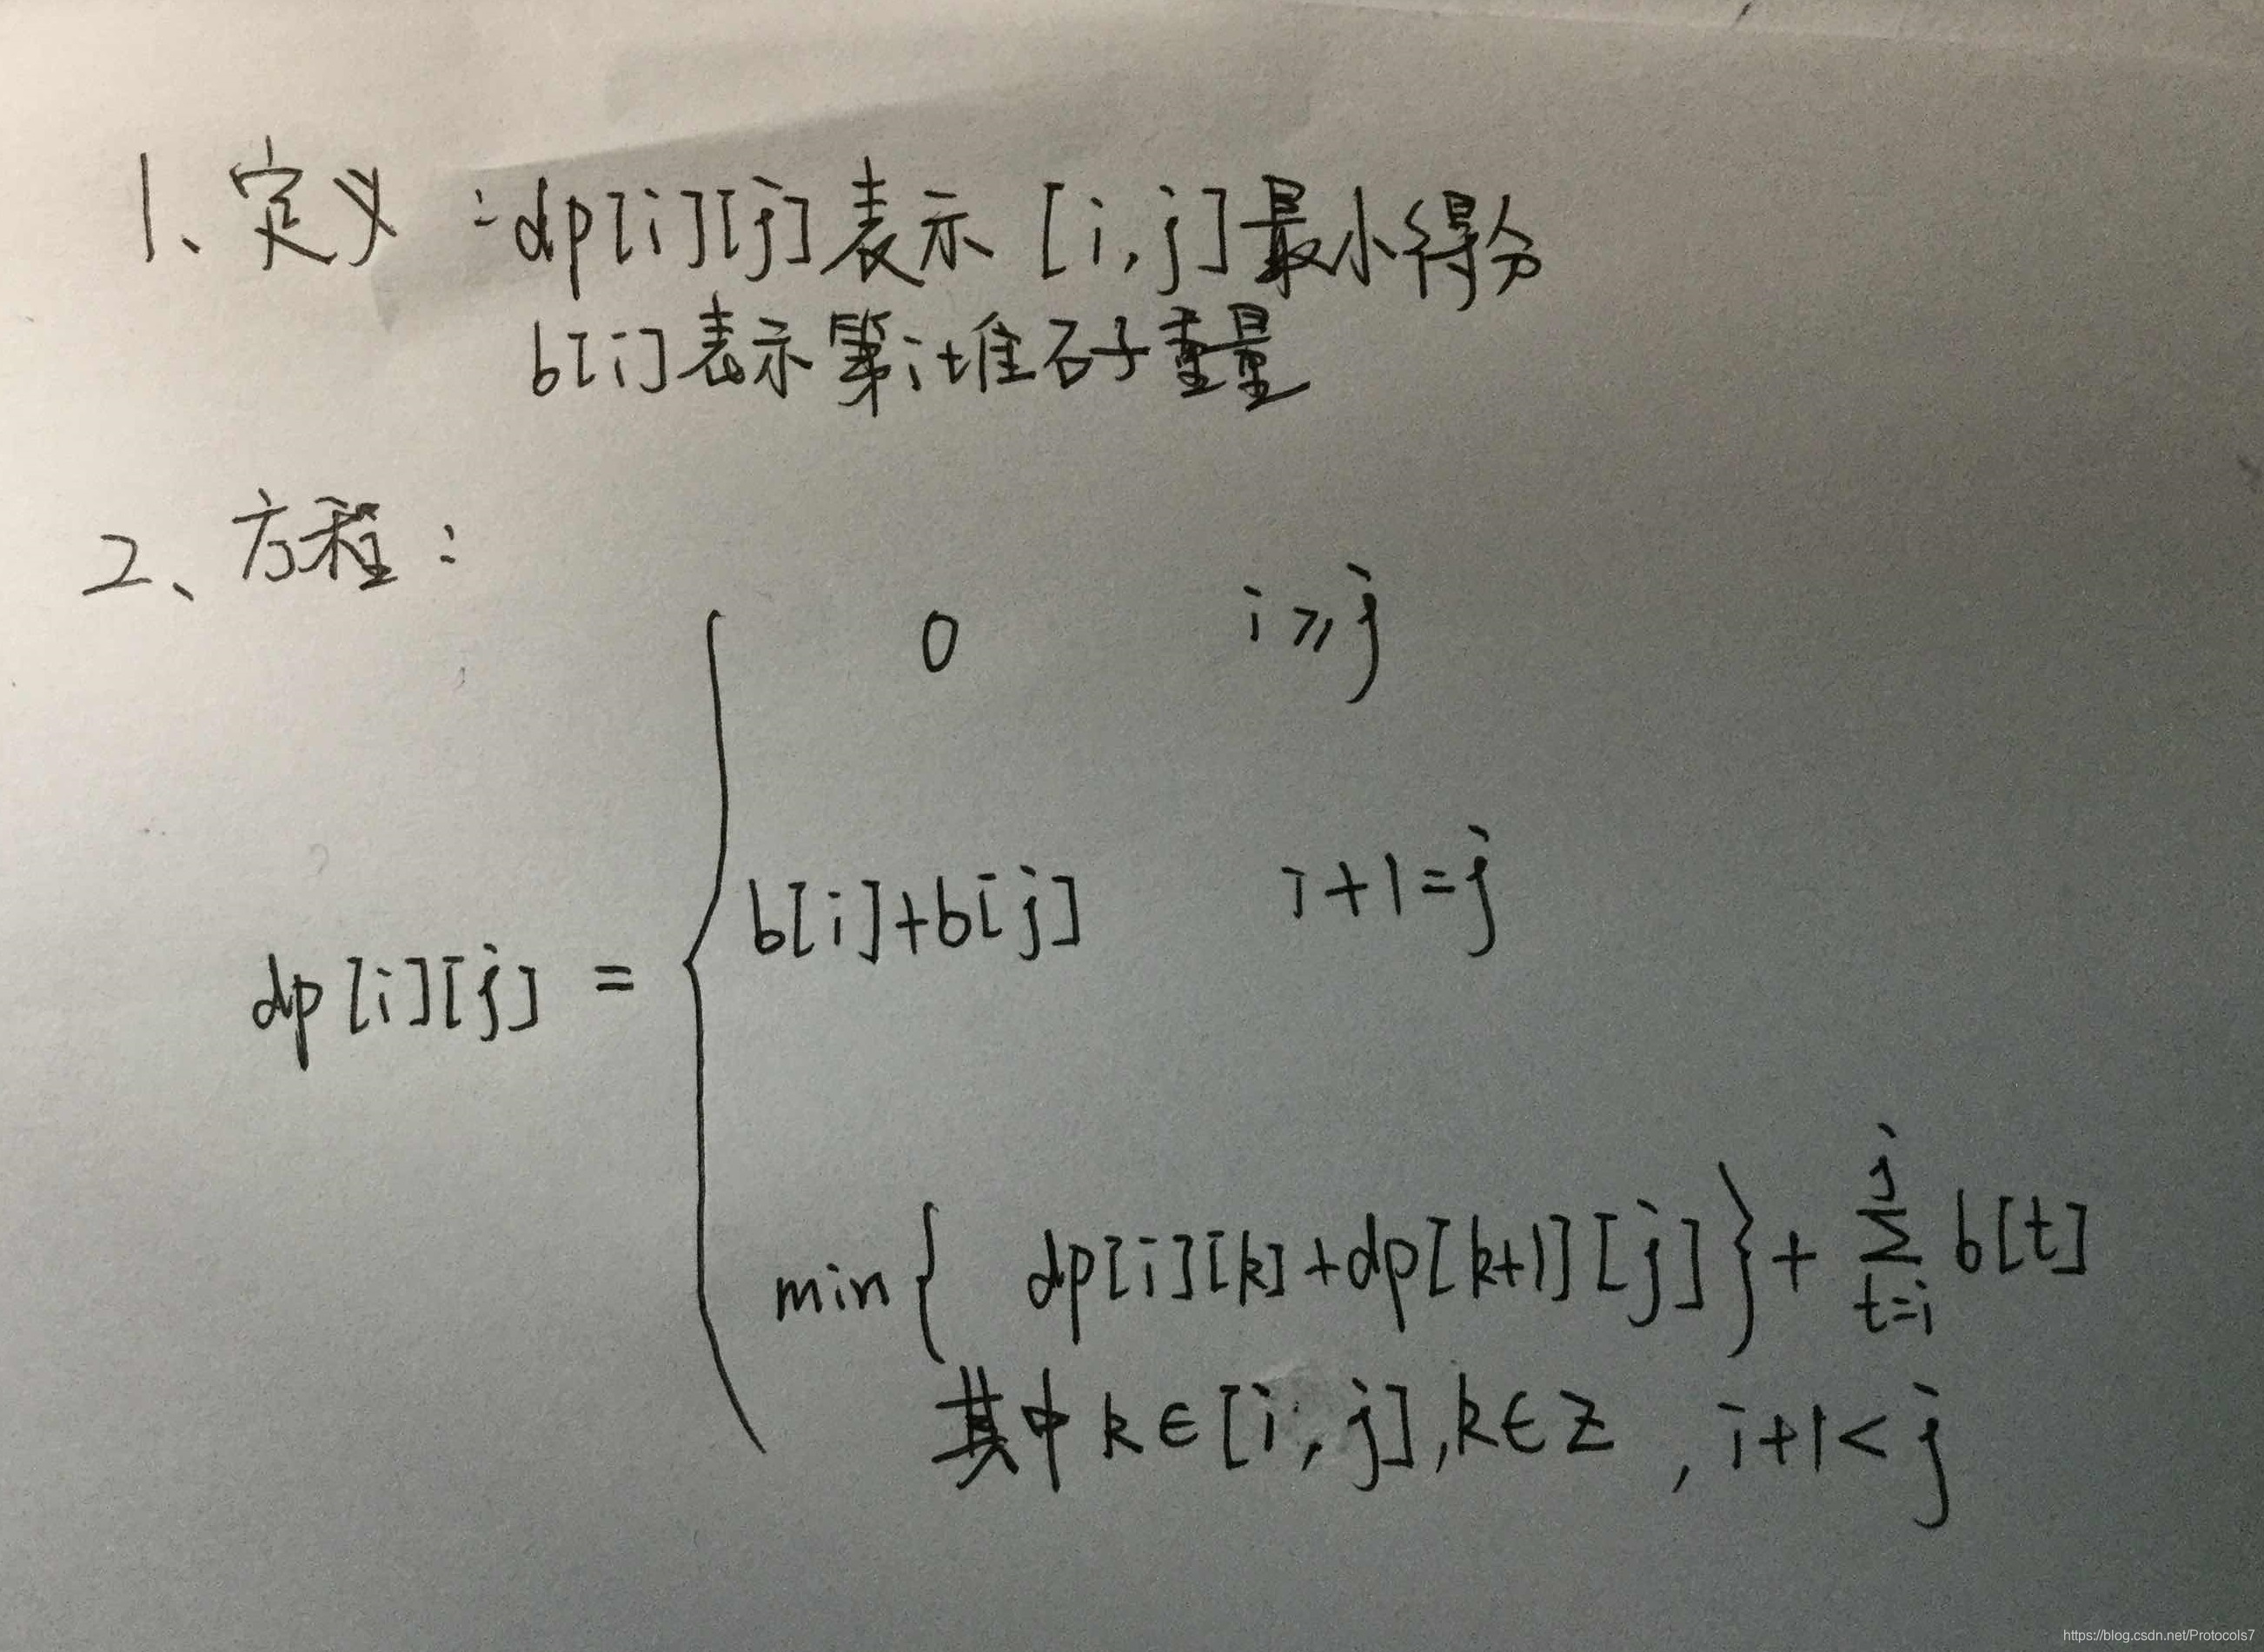 1、定义：dp[i][j]表示 [i,j]最小得分
b[i]表示第i堆石子重量
2、方程：
0 i⩾j
b[i]+b[j] i+1=j
dp[i][j] =
min{ dp[i][k]+dp[k+1][j]}+ ∑_{t=i}^{j} b[t]
其中 k∈[i,j],k∈Z ,i+1<j
https://blog.csdn.net/Protocols7